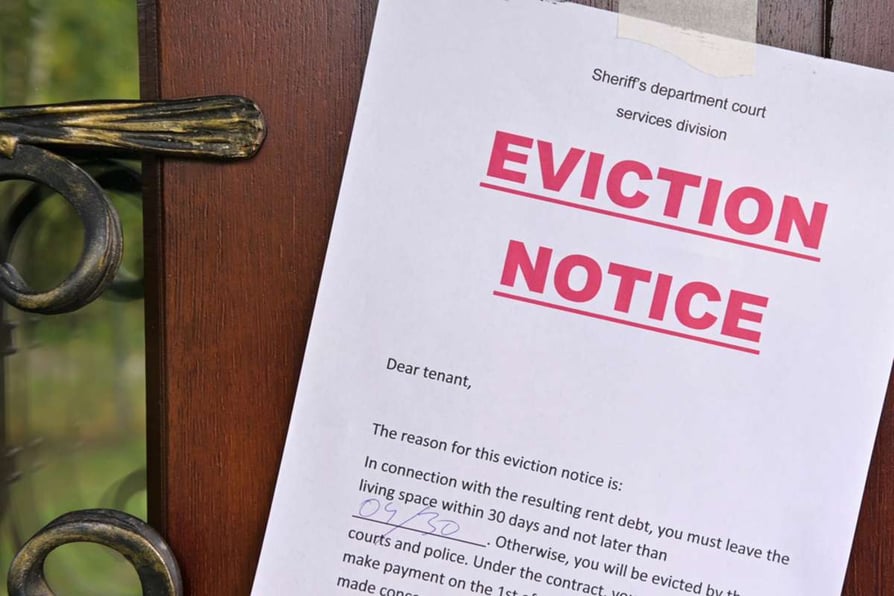 Sheriff's department court
services division
EVICTION
NOTICE
Dear tenant,
The reason for this eviction notice is:
In connection with the resulting rent debt, you must leave the
living space within 30 days and not later than
04/30. Otherwise, you will be evicted by
courts and police. Under the contract,
make payment on the 1st
made